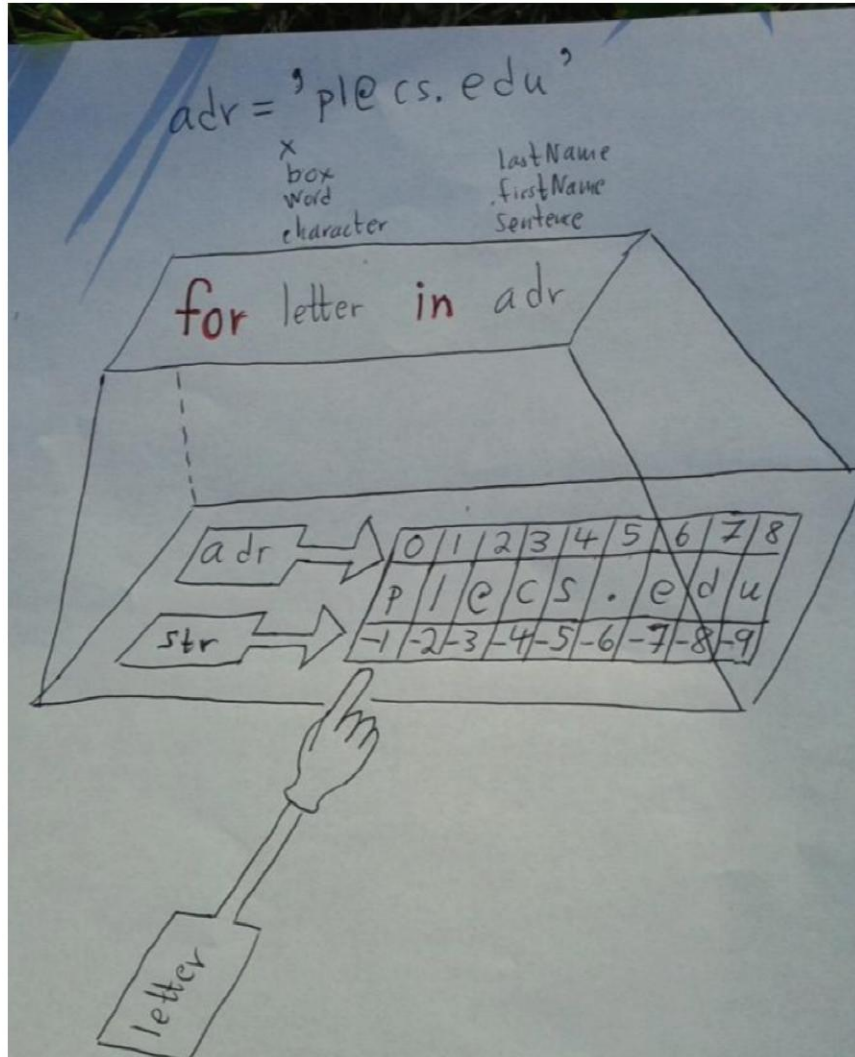 adr = 'pl@cs.edu'
x
box
word
character
lastName
firstName
sentence
for letter in adr
adr
0 1 2 3 4 5 6 7 8
p l @ c s . e d u
str
-1 -2 -3 -4 -5 -6 -7 -8 -9
letter